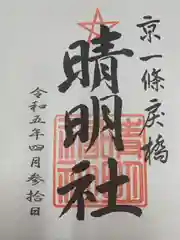 京一條戻橋
晴明社
令和五年四月参拾日